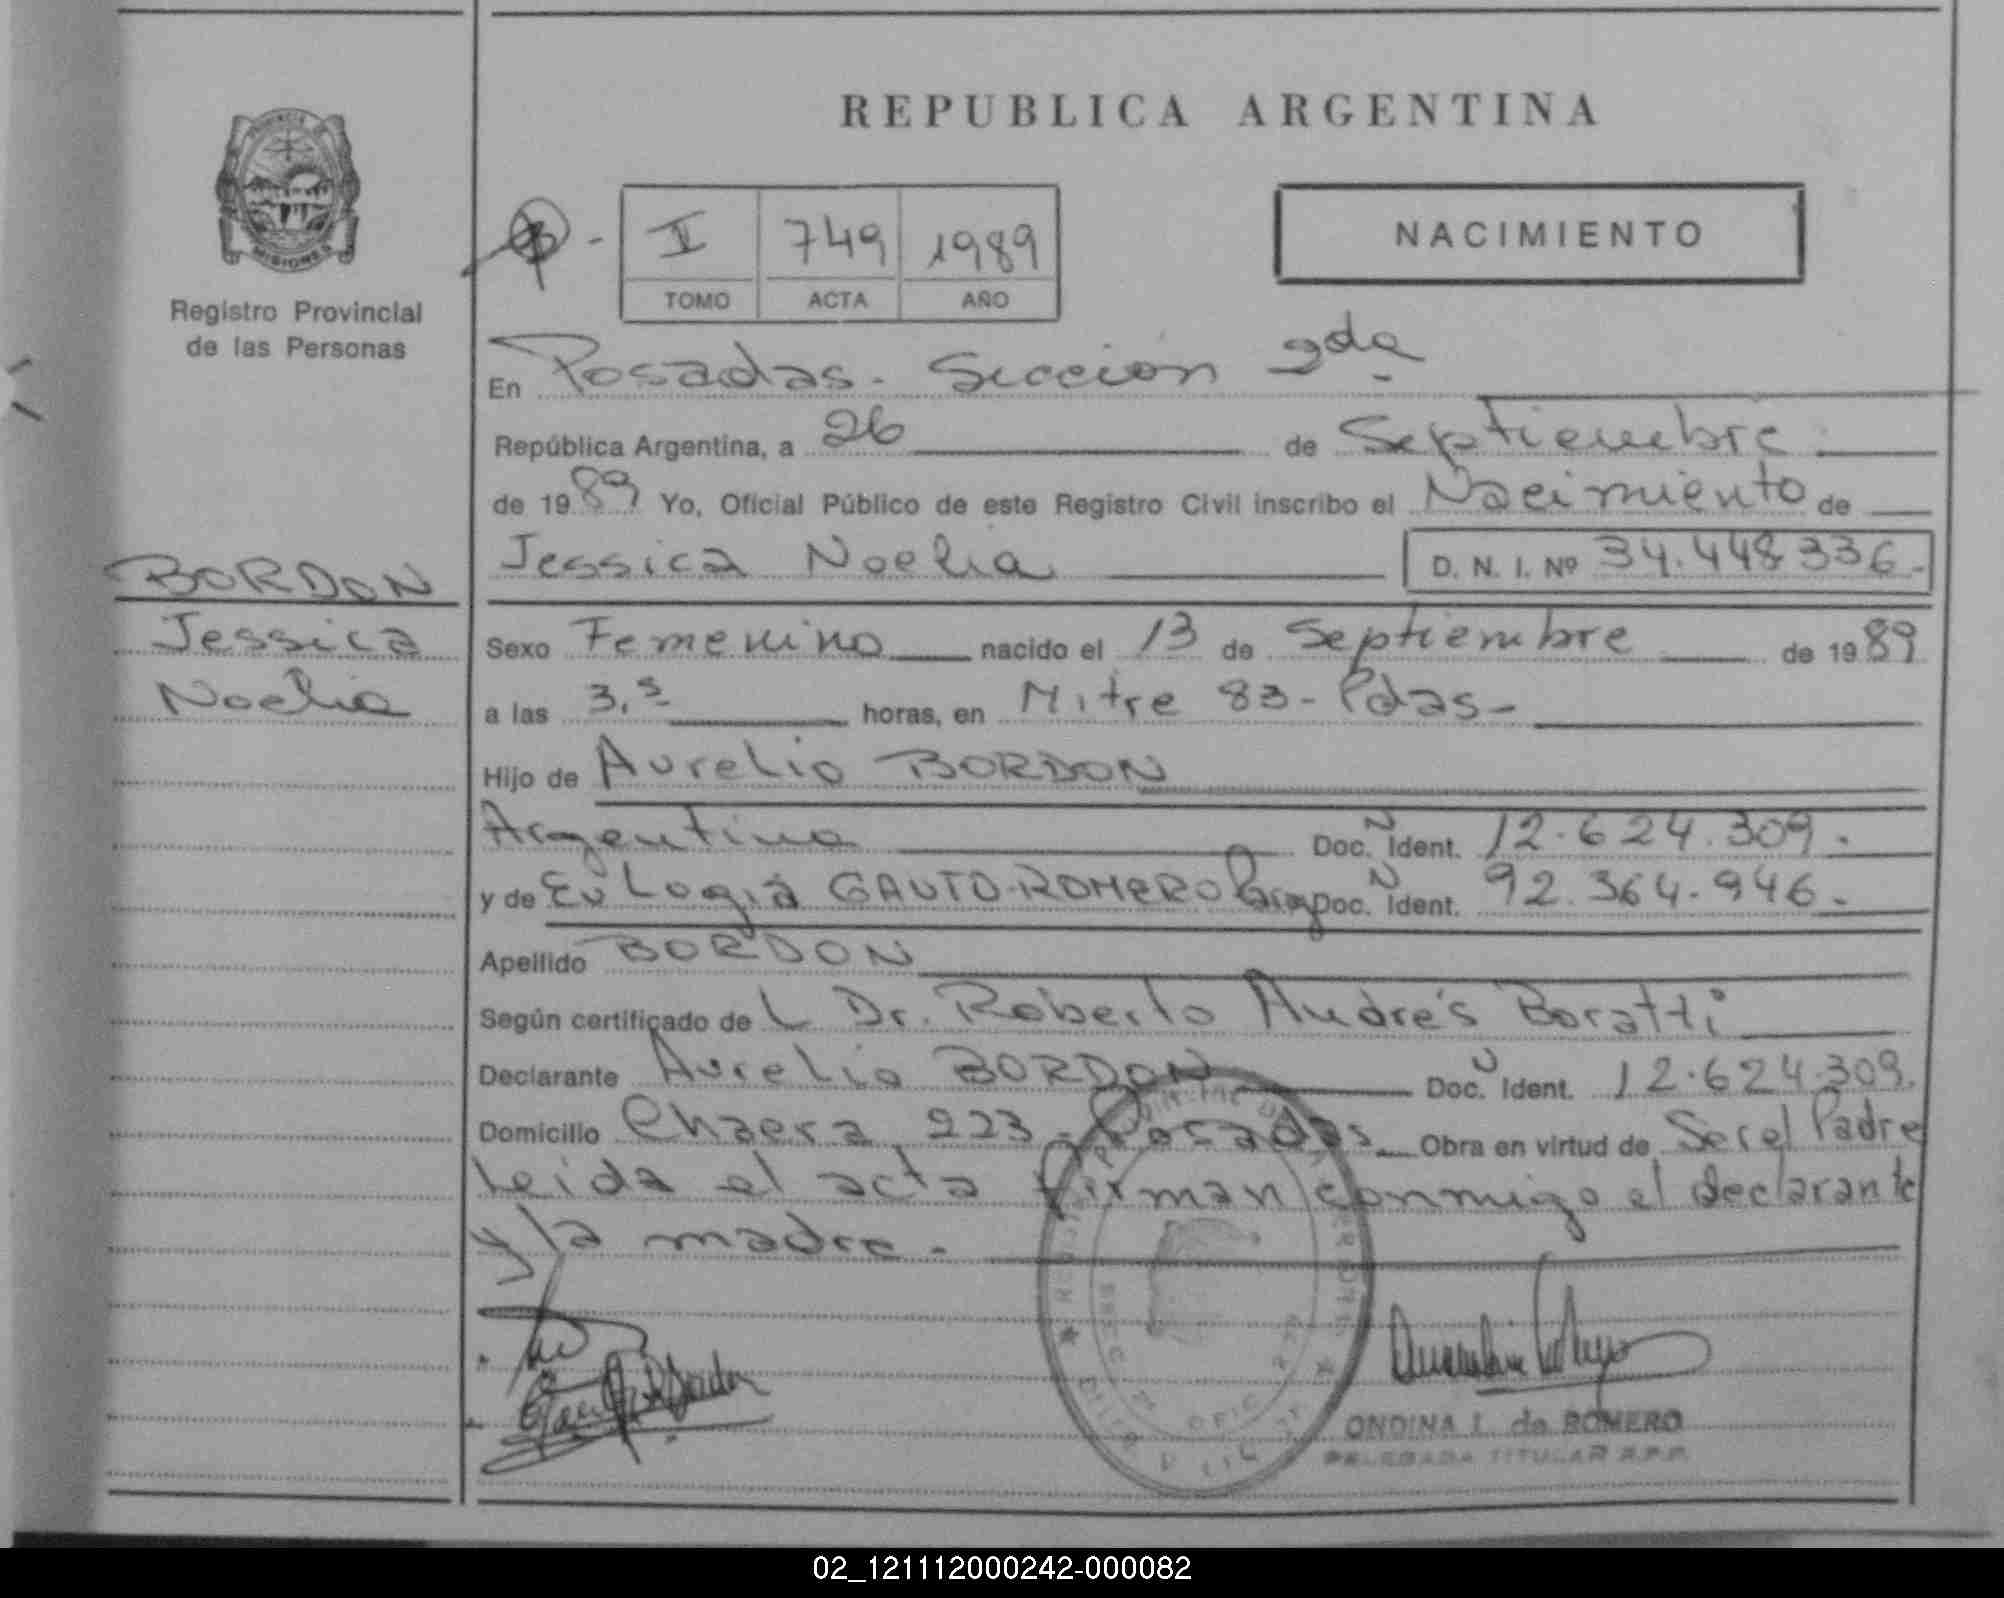 REPUBLICA ARGENTINA
PROVINCIA DE
MISIONES
Registro Provincial
de las Personas
II 749 1989
TOMO ACTA AÑO
NACIMIENTO
En Posadas. Sección 2da
República Argentina, a 26 de Septiembre
de 1989 Yo, Oficial Público de este Registro Civil inscribo el Nacimiento de
BORDON
Jessica
Noelia
Jessica Noelia D. N. I. Nº 34.448336.-
Sexo Femenino nacido el 13 de Septiembre de 1989
a las 3,5 horas, en Mitre 83 - Pdas -
Hijo de Aurelio BORDON
Argentino Doc. N Ident. 12.624.309.
y de Eulogia GAUTO-ROMERO Doc. N Ident. 92.364.946.-
Apellido BORDON
Según certificado de L Dr. Roberto Andrés Boratti
Declarante Aurelio BORDON Doc. N Ident. 12.624.309.
Domicilio 223 - Posadas Obra en virtud de Ser el Padre
Leida el acta firman conmigo el declarante
y la madre.-
ONDINA I. de ROMERO
DELEGADA TITULAR R.P.P.
02_121112000242-000082